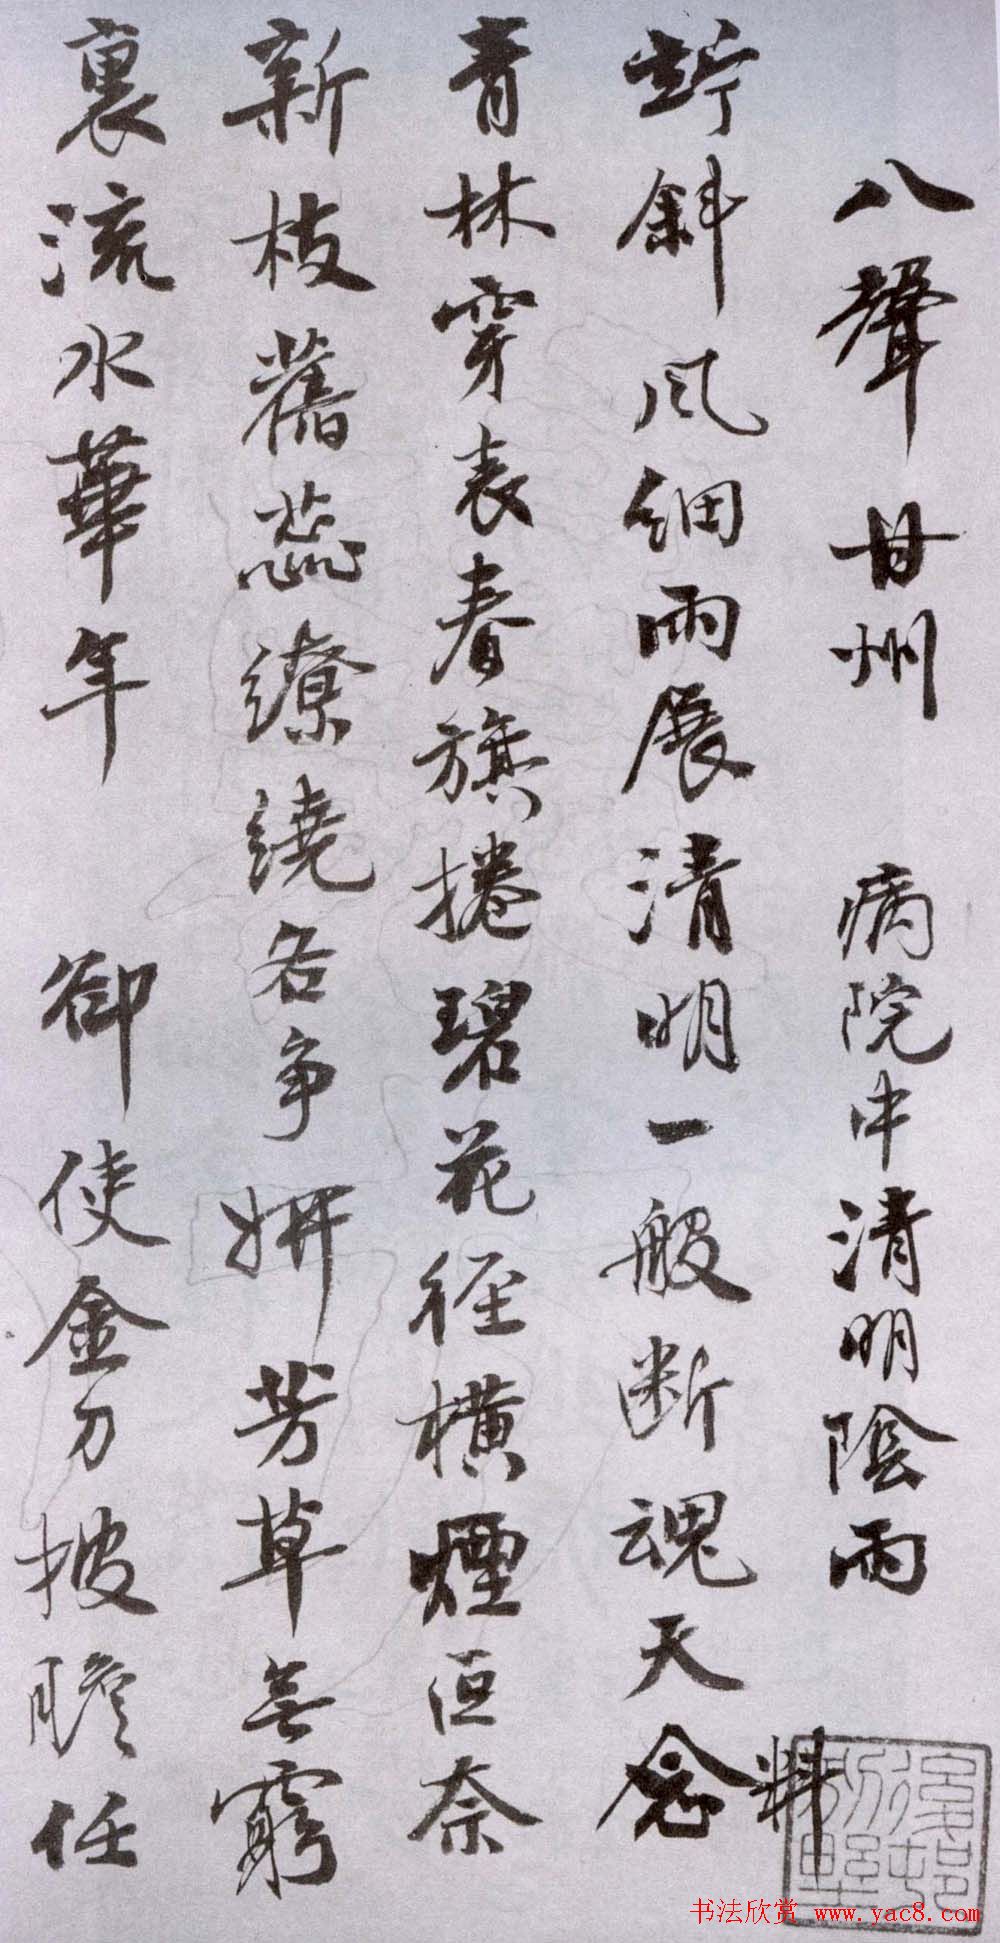 八聲甘州 病院中清明陰雨
竚斜风細雨展清明一般断魂天念
料
青林穿表春旗捲碧花径横煙叵奈
新枝舊蕊繚繞各争妍芳草無窮
裏流水華年 卻使金刀披膽任
书法欣赏 www.yac8.com